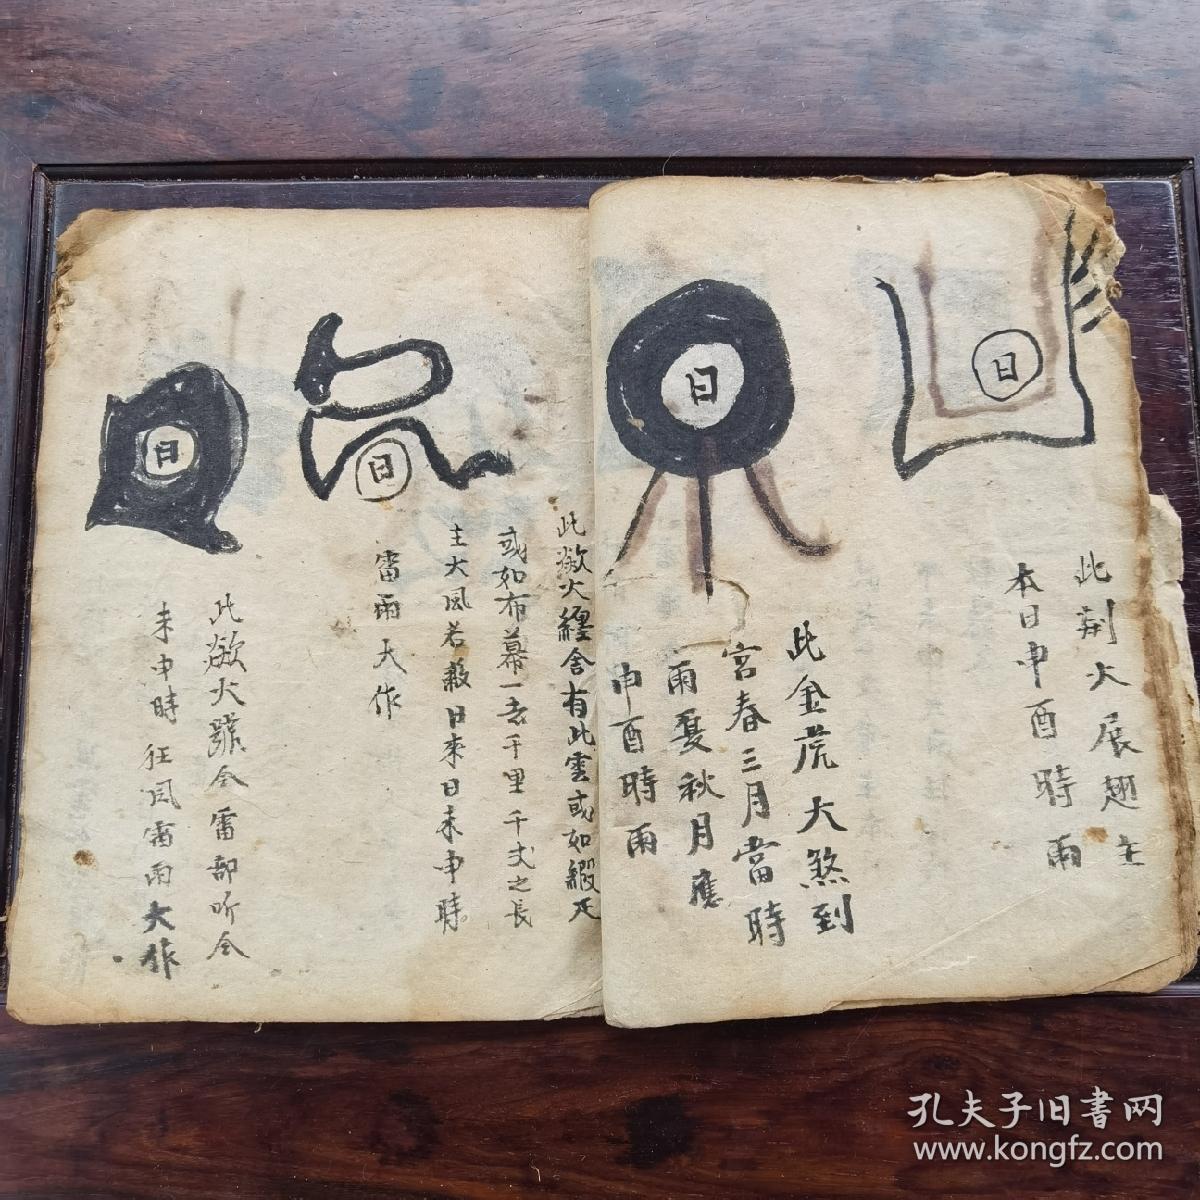 日
此荆火展翅主
本日申酉時雨
日
此金虎大煞到
宮春三月當時
雨夏秋月應
申酉時雨
日
此歘火纏舍有此雲或如緞疋
或如布幕一去千里千丈之長
主大風若殺日來日未申時
雷雨大作
日
此歘火號令雷部听令
未申時狂风雷雨大作
孔夫子旧書网
www.kongfz.com